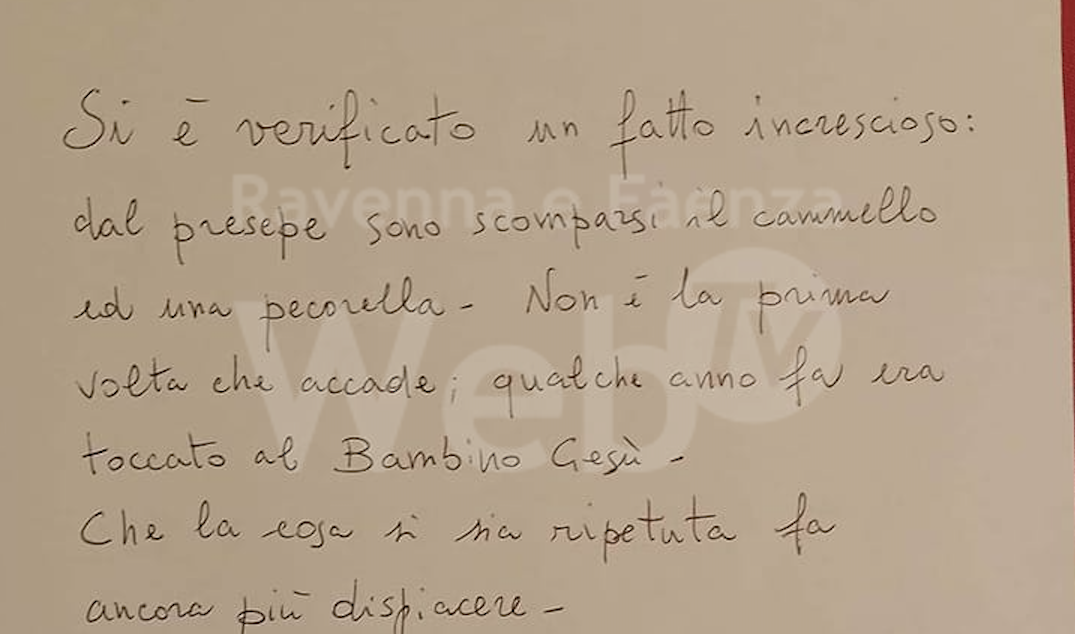 Si è verificato un fatto increscioso:
dal presepe sono scomparsi il cammello
ed una pecorella - Non è la prima
volta che accade; qualche anno fa era
toccato al Bambino Gesù -
Che la cosa si sia ripetuta fa
ancora più dispiacere -
Ravenna e Faenza
WebTV